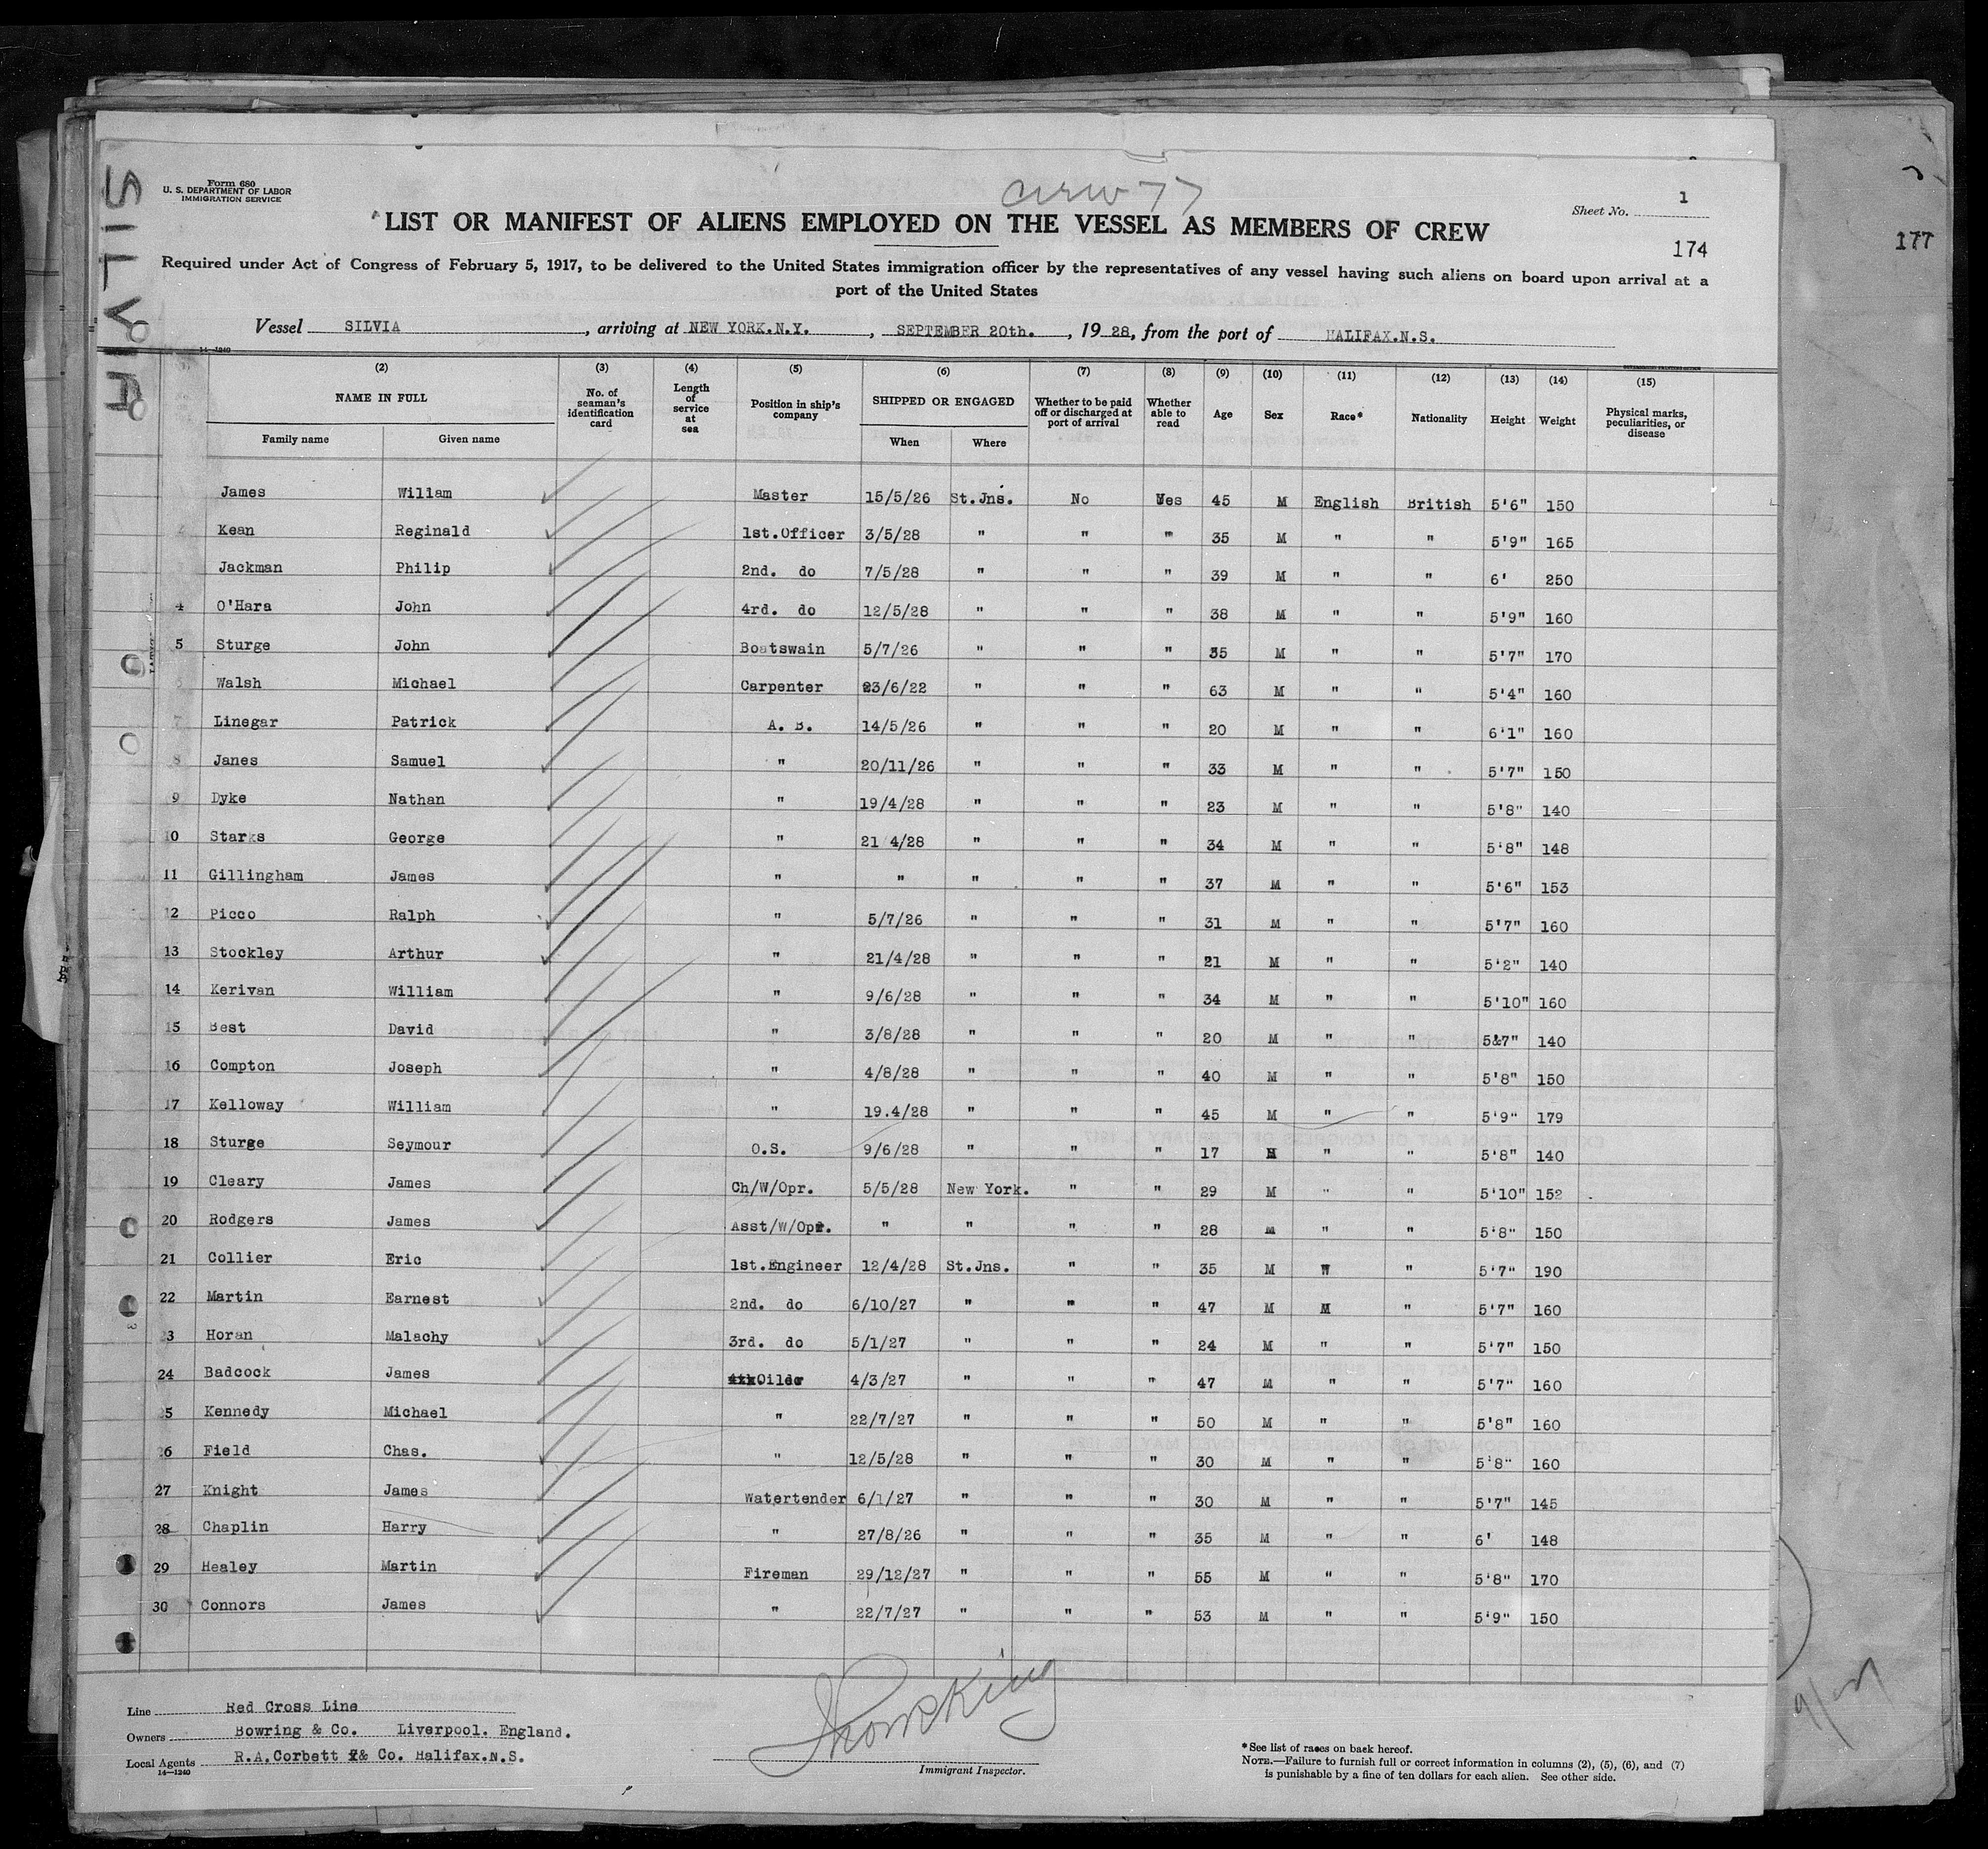 SILVIA
Form 680
U. S. DEPARTMENT OF LABOR
IMMIGRATION SERVICE
Crew 77
Sheet No. 1
LIST OR MANIFEST OF ALIENS EMPLOYED ON THE VESSEL AS MEMBERS OF CREW
174
177
Required under Act of Congress of February 5, 1917, to be delivered to the United States immigration officer by the representatives of any vessel having such aliens on board upon arrival at a
port of the United States
Vessel SILVIA, arriving at NEW YORK.N.Y., SEPTEMBER 20th., 19 28, from the port of HALIFAX.N.S.
14-1240
(2) (3) (4) (5) (6) (7) (8) (9) (10) (11) (12) (13) (14) (15)
NAME IN FULL Family name Given name
No. of seaman's identification card
Length of service at sea
Position in ship's company
SHIPPED OR ENGAGED When Where
Whether to be paid off or discharged at port of arrival
Whether able to read
Age Sex Race* Nationality Height Weight
Physical marks, peculiarities, or disease
James Wiliam Master 15/5/26 St.Jns. No Yes 45 M English British 5'6" 150
Kean Reginald 1st.Officer 3/5/28 " " " 35 M " " 5'9" 165
Jackman Philip 2nd. do 7/5/28 " " " 39 M " " 6' 250
4 O'Hara John 4rd. do 12/5/28 " " " 38 M " " 5'9" 160
5 Sturge John Boatswain 5/7/26 " " " 35 M " " 5'7" 170
6 Walsh Michael Carpenter 23/6/22 " " " 63 M " " 5'4" 160
7 Linegar Patrick A. B. 14/5/26 " " " 20 M " " 6'1" 160
8 Janes Samuel " 20/11/26 " " " 33 M " " 5'7" 150
9 Dyke Nathan " 19/4/28 " " " 23 M " " 5'8" 140
10 Starks George " 21 4/28 " " " 34 M " " 5'8" 148
11 Gillingham James " " " " " 37 M " " 5'6" 153
12 Picco Ralph " 5/7/26 " " " 31 M " " 5'7" 160
13 Stockley Arthur " 21/4/28 " " " 21 M " " 5'2" 140
14 Kerivan William " 9/6/28 " " " 34 M " " 5'10" 160
15 Best David " 3/8/28 " " " 20 M " " 5&7" 140
16 Compton Joseph " 4/8/28 " " " 40 M " " 5'8" 150
17 Kelloway William " 19.4/28 " " " 45 M " " 5'9" 179
18 Sturge Seymour O.S. 9/6/28 " " " 17 M " " 5'8" 140
19 Cleary James Ch/W/Opr. 5/5/28 New York. " " 29 M " " 5'10" 152
20 Rodgers James Asst/W/Opr. " " " " 28 M " " 5'8" 150
21 Collier Eric 1st.Engineer 12/4/28 St.Jns. " " 35 M " " 5'7" 190
22 Martin Earnest 2nd. do 6/10/27 " " " 47 M M " 5'7" 160
23 Horan Malachy 3rd. do 5/1/27 " " " 24 M " " 5'7" 150
24 Badcock James Oiler 4/3/27 " " " 47 M " " 5'7" 160
25 Kennedy Michael " 22/7/27 " " " 50 M " " 5'8" 160
26 Field Chas. " 12/5/28 " " " 30 M " " 5'8" 160
27 Knight James Watertender 6/1/27 " " " 30 M " " 5'7" 145
28 Chaplin Harry " 27/8/26 " " " 35 M " " 6' 148
29 Healey Martin Fireman 29/12/27 " " " 55 M " " 5'8" 170
30 Connors James " 22/7/27 " " " 53 M " " 5'9" 150
Line Red Cross Line
Owners Bowring & Co. Liverpool. England.
Local Agents R.A.Corbett & Co. Halifax.N.S.
14-1240
Immigrant Inspector.
*See list of races on back hereof.
NOTE.—Failure to furnish full or correct information in columns (2), (5), (6), and (7)
is punishable by a fine of ten dollars for each alien. See other side.